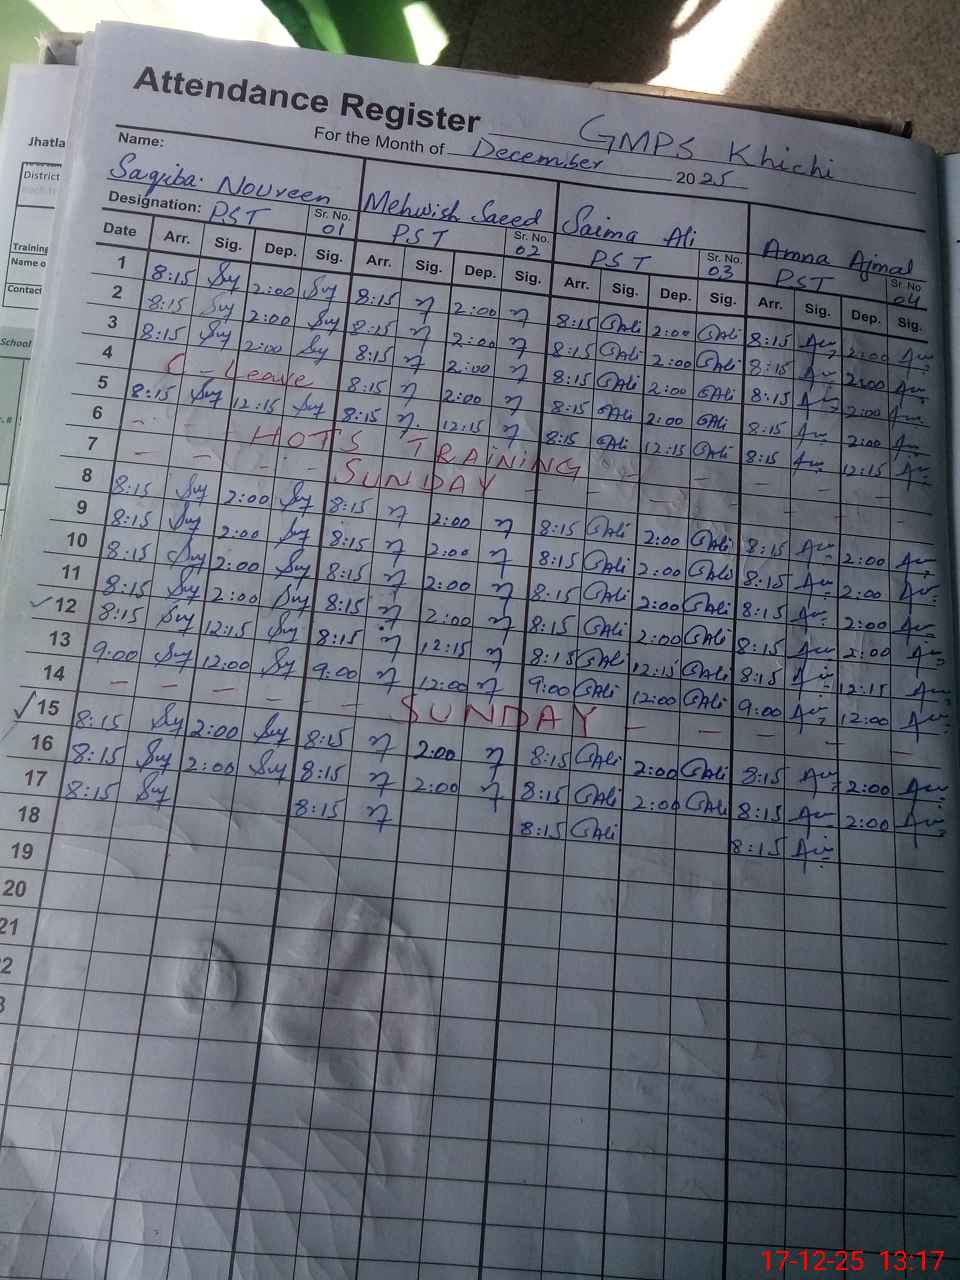 Attendance Register GMPS Khichi
For the Month of December 2025
Name: Saqiba Noureen Mehwish Saeed Saima Ali Amna Ajmal
Designation: PST Sr. No. 01 PST Sr. No. 02 PST Sr. No. 03 PST Sr. No 04
Date Arr. Sig. Dep. Sig. Arr. Sig. Dep. Sig. Arr. Sig. Dep. Sig. Arr. Sig. Dep. Sig.
1 8:15 2:00 8:15 2:00 8:15 GAli 2:00 GAli 8:15 2:00
2 8:15 2:00 8:15 2:00 8:15 GAli 2:00 GAli 8:15 2:00
3 8:15 2:00 8:15 2:00 8:15 GAli 2:00 GAli 8:15 2:00
4 C - Leave 8:15 2:00 8:15 GAli 2:00 GAli 8:15 2:00
5 8:15 12:15 8:15 12:15 8:15 GAli 12:15 GAli 8:15 12:15
6 - - HOTS TRAINING - - - -
7 - - - - SUNDAY - - - - - -
8 8:15 2:00 8:15 2:00 8:15 GAli 2:00 GAli 8:15 2:00
9 8:15 2:00 8:15 2:00 8:15 GAli 2:00 GAli 8:15 2:00
10 8:15 2:00 8:15 2:00 8:15 GAli 2:00 GAli 8:15 2:00
11 8:15 2:00 8:15 2:00 8:15 GAli 2:00 GAli 8:15 2:00
✓12 8:15 12:15 8:15 12:15 8:15 GAli 12:15 GAli 8:15 12:15
13 9:00 12:00 9:00 12:00 9:00 GAli 12:00 GAli 9:00 12:00
14 - - - - - - SUNDAY - - - - -
✓15 8:15 2:00 8:15 2:00 8:15 GAli 2:00 GAli 8:15 2:00
16 8:15 2:00 8:15 2:00 8:15 GAli 2:00 GAli 8:15 2:00
17 8:15 8:15 8:15 GAli 8:15
18
19
20
21
2
3
Jhatla
District
Training
Name o
Contact
School
17-12-25 13:17